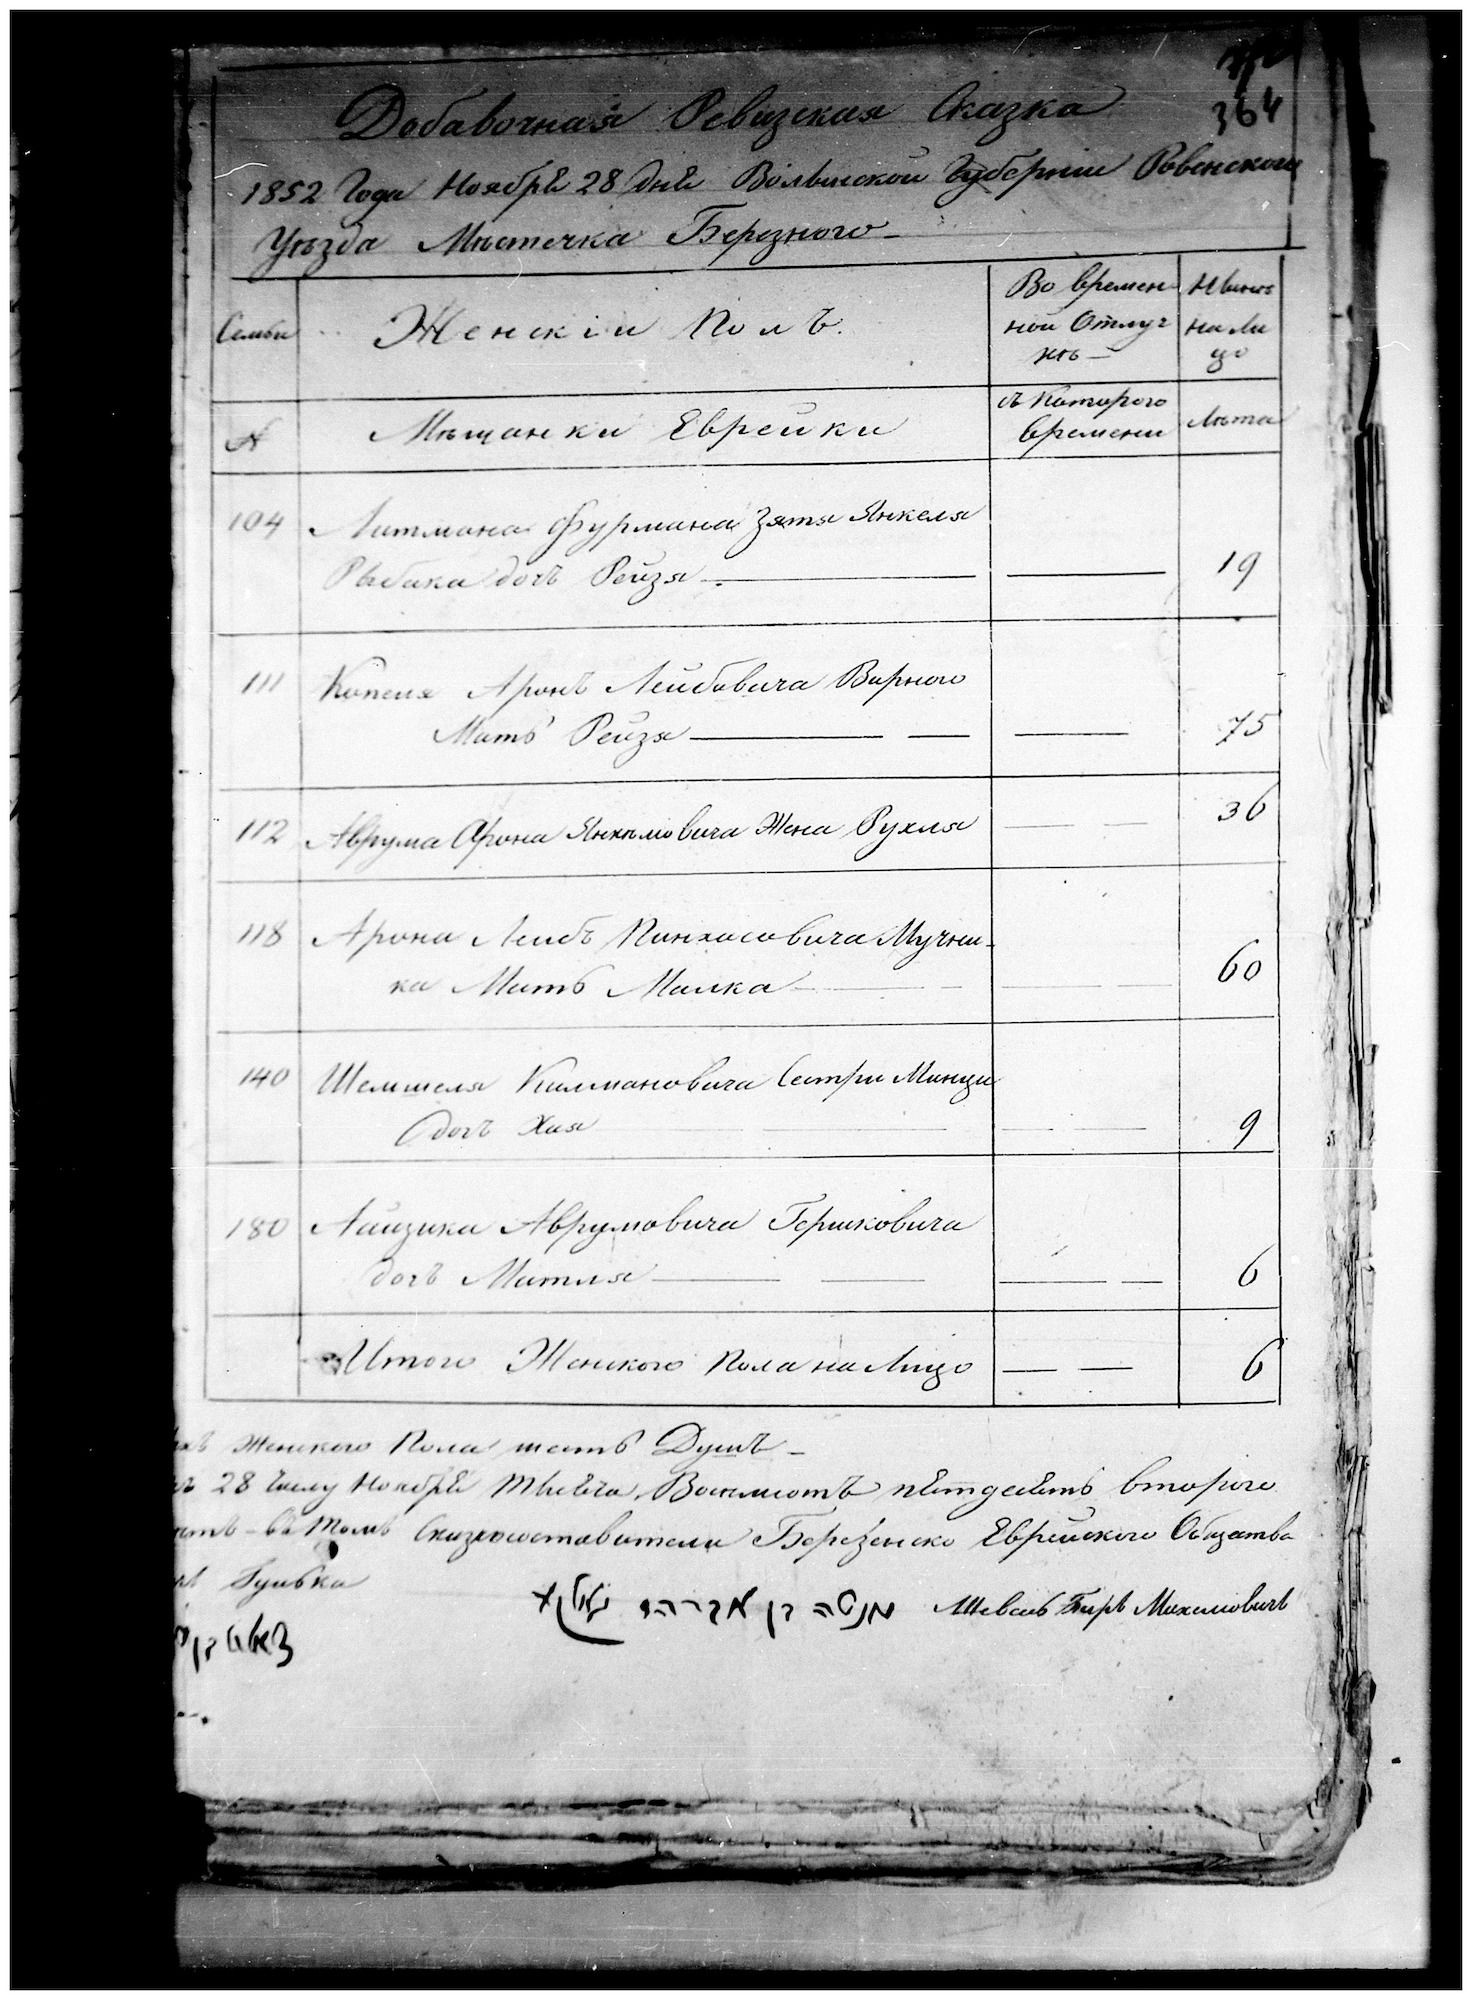 364
Добавочная Ревизская Сказка
1852 Года Ноября 28 дня Волынской Губернии Ровенского
Уезда Местечка Березного
Семьи
Женскiй Полъ.
Во времен
ной Отлуч
кѣ
Ныне
на ли
цо
№
Мещанки Еврейки
съ Которого
времени
Лѣта
104
Литмана Фурмана Зятя Янкеля
Рыбака дочь Рейзя
19
111
Копеля Аронъ Лейбовича Вирного
Мать Рейзя
75
112
Аврума Арона Янкелевича Жена Рухля
36
118
Арона Лейбъ Пинхасовича Мучни-
ка Мать Малка
60
140
Шемшеля Калмановича Сестри Минци
дочь Хая
9
180
Айзика Аврумовича Гершковича
дочь Матля
6
Итого Женского Пола на Лицо
6
Женского Пола шесть Душъ
28 числу Ноября Тысяча Восемсотъ пятдесятъ второго
въ томъ Сказкосоставители Березенско Еврейского Общества
Гулька
מנשה בן אברהם